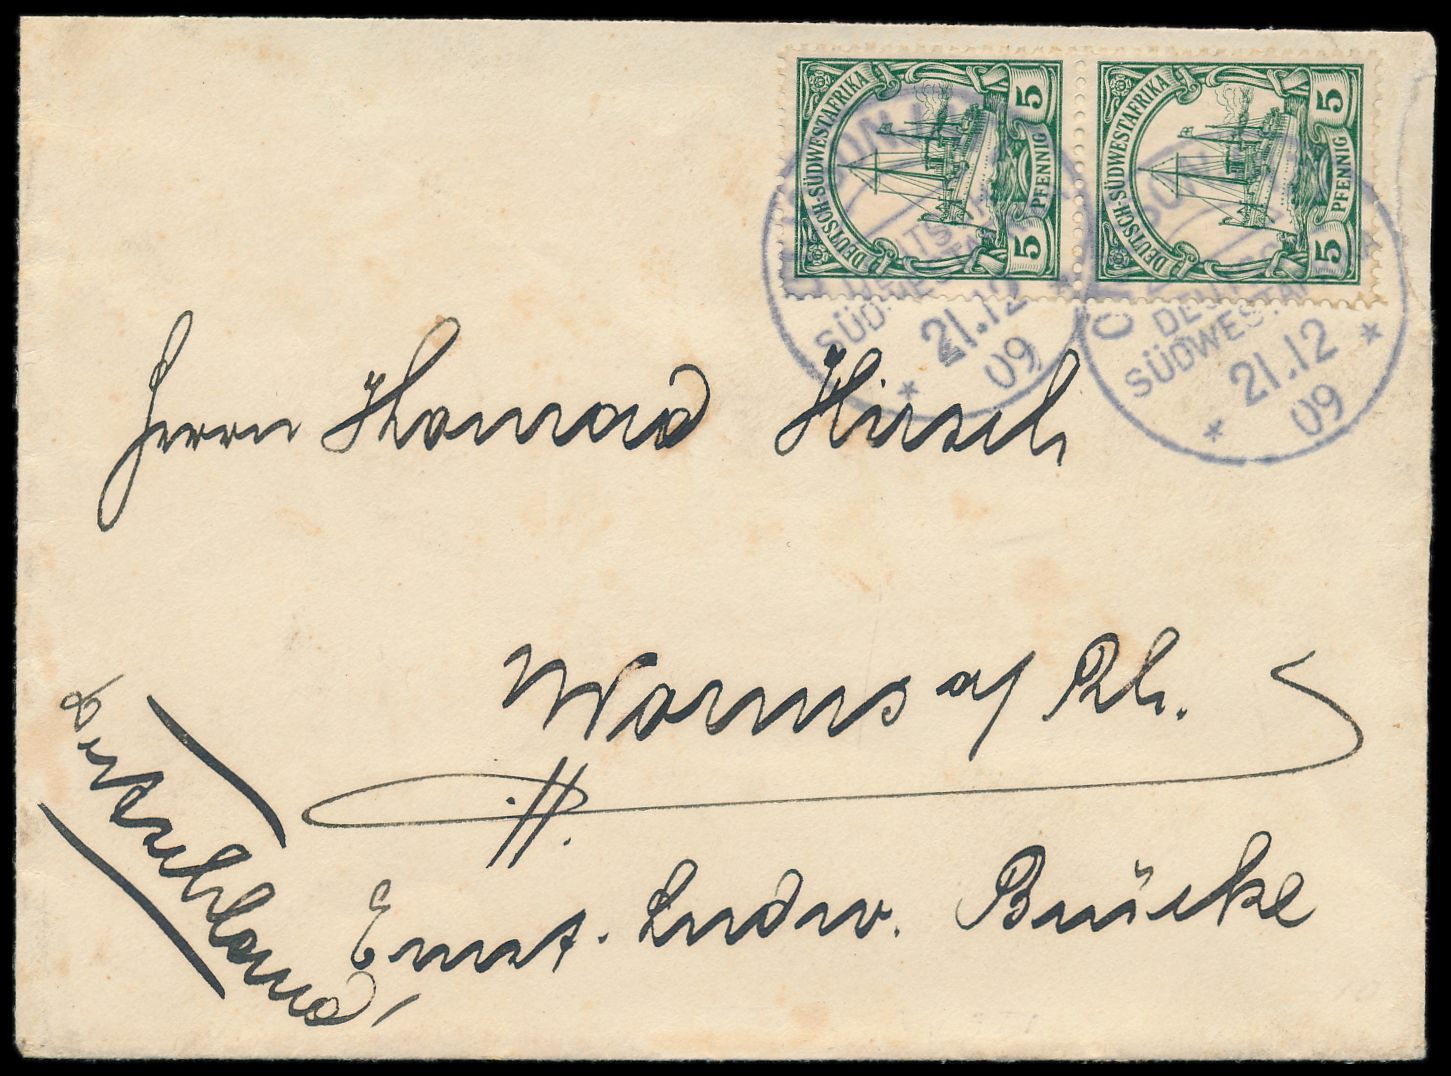 DEUTSCH-SÜDWESTAFRIKA
5 PFENNIG 5
DEUTSCH-SÜDWESTAFRIKA
5 PFENNIG 5
SÜDWESTAFRIKA
21.12
09
DEUTSCH
SÜDWESTAFRIKA
21.12
09
Herrn Konrad Hirsch
Worms a/ Rh.
Ernst. Ludw. Brücke
Deutschland